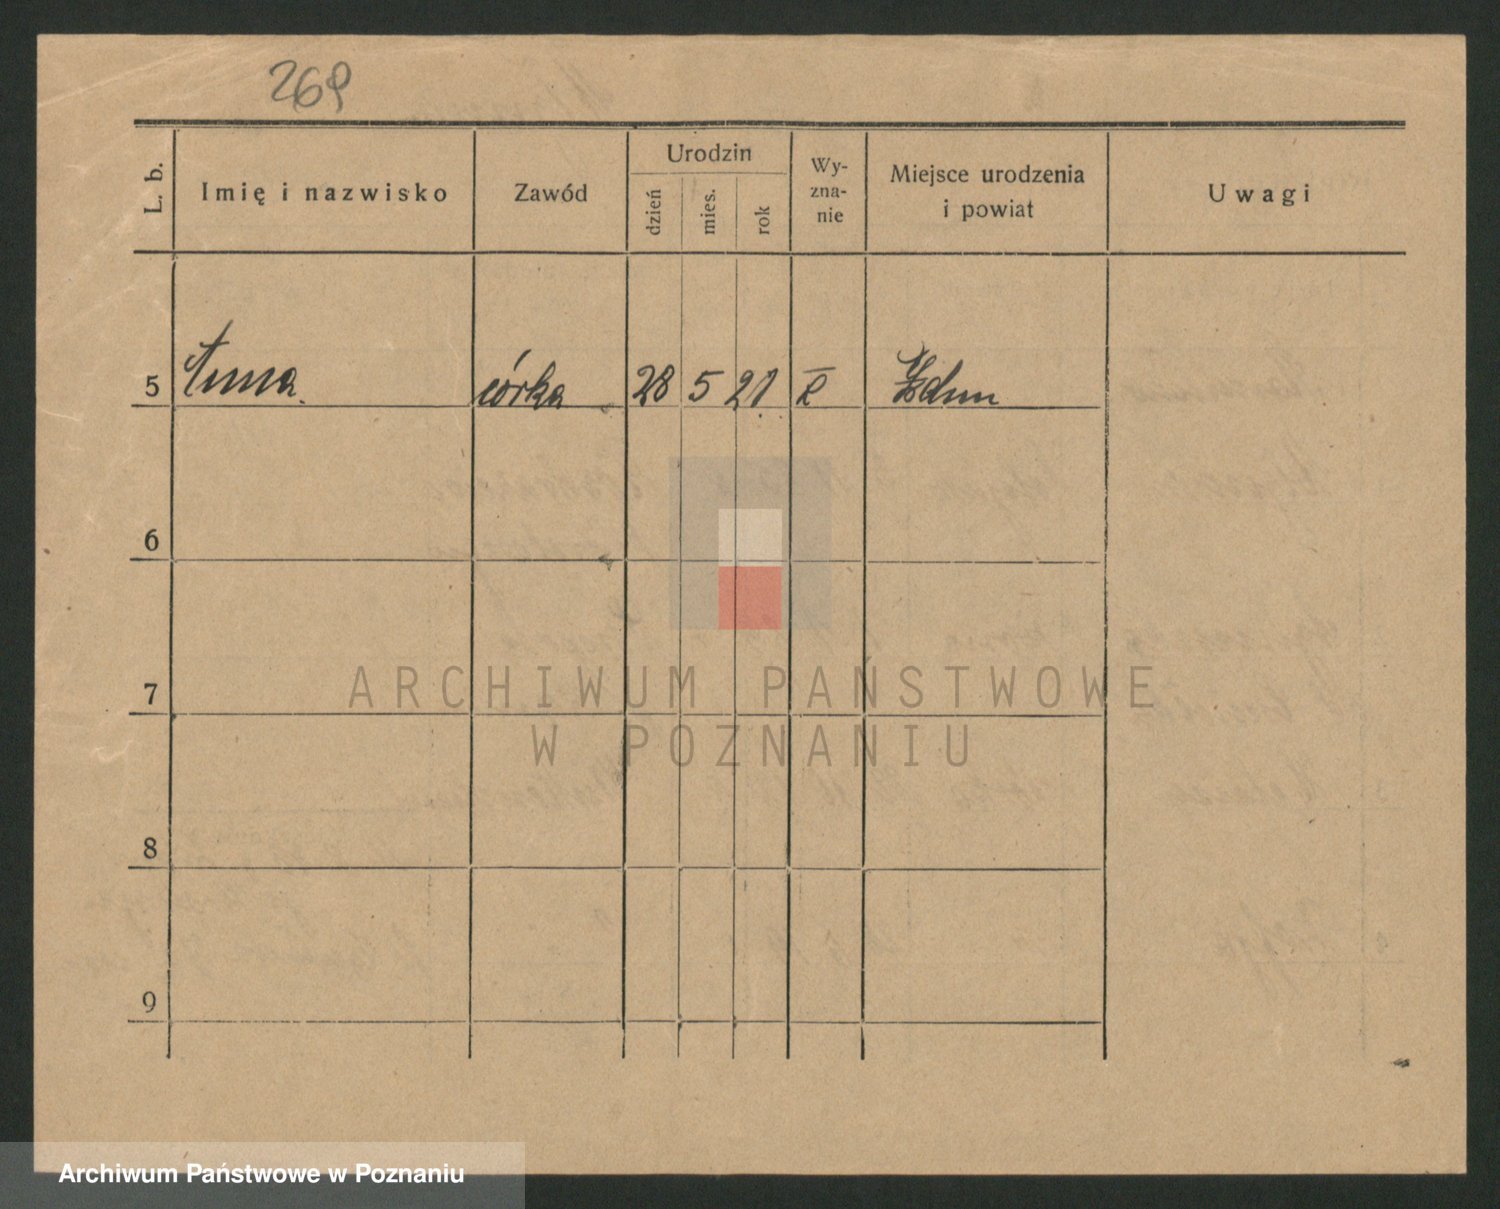 269
L. b.
Imię i nazwisko
Zawód
Urodzin
dzień
mies.
rok
Wy-
zna-
nie
Miejsce urodzenia
i powiat
Uwagi
5 Anna córka 28 5 21 Zduny
6
7
8
9
ARCHIWUM PAŃSTWOWE
W POZNANIU
Archiwum Państwowe w Poznaniu